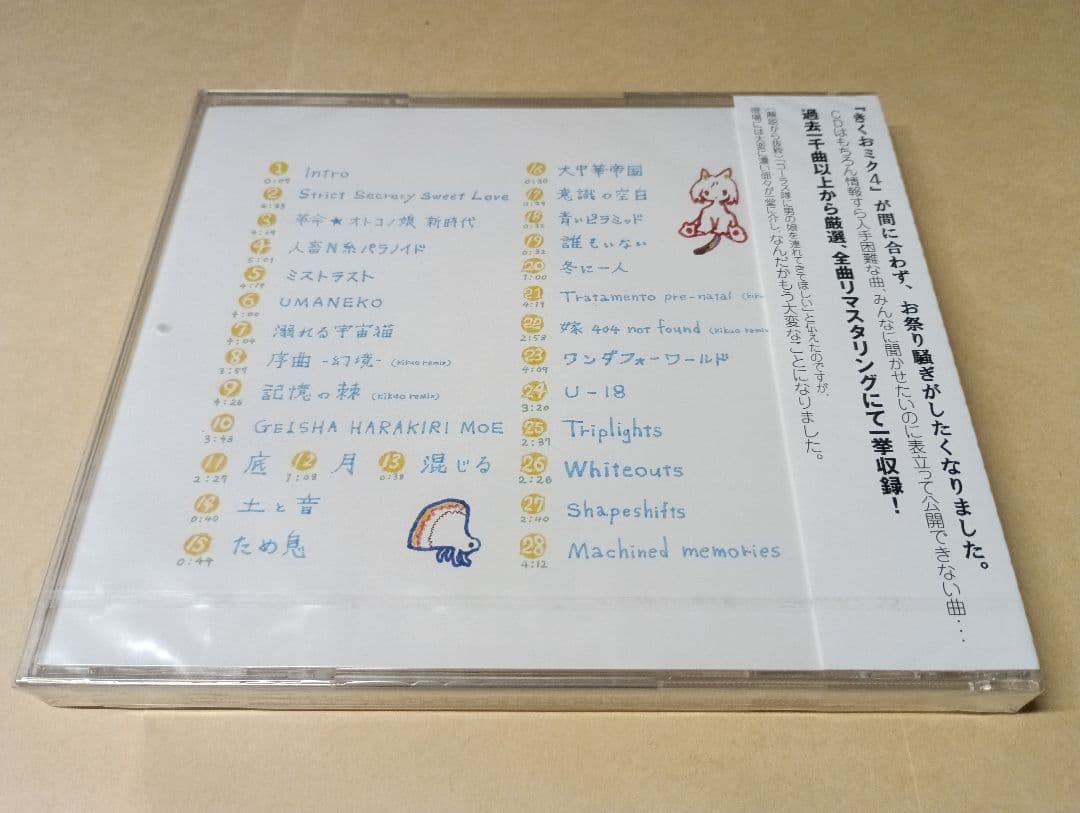 1 Intro
0:07
2 Strict Secrecy Sweet Love
4:33
3 革命★オトコノ娘 新時代
4:19
4 人畜N系パラノイド
5:01
5 ミストラスト
4:19
6 UMANEKO
4:00
7 溺れる宇宙猫
4:04
8 序曲 -幻境- (kikuo remix)
3:57
9 記憶の棘 (kikuo remix)
4:26
10 GEISHA HARAKIRI MOE
3:43
11 底 12 月 13 混じる
2:27 1:08 0:38
14 土と音
0:40
15 ため息
0:44
16 大中華帝国
0:30
17 意識の空白
18 青いピラミッド
0:32
19 誰もいない
0:32
20 冬に一人
1:00
21 Tratamento pre-natal
4:19
22 嫁 404 not found (kikuo remix
2:53
23 ワンダフォーワールド
4:09
24 U-18
3:20
25 Triplights
2:37
26 Whiteouts
2:26
27 Shapeshifts
2:40
28 Machined memories
4:12
『きくおミク4』が間に合わず、お祭り騒ぎがしたくなりました。
CDはもちろん情報すら入手困難な曲、みんなに聞かせたいのに表立って公開できない曲...
過去一千曲以上から厳選、全曲リマスタリングにて一挙収録!
(解説から抜粋)「コーラス隊に男の娘を連れてきてほしい」と伝えたのですが、
現場には大変に濃い面々が一堂に介し、なんだかもう大変なことになりました。